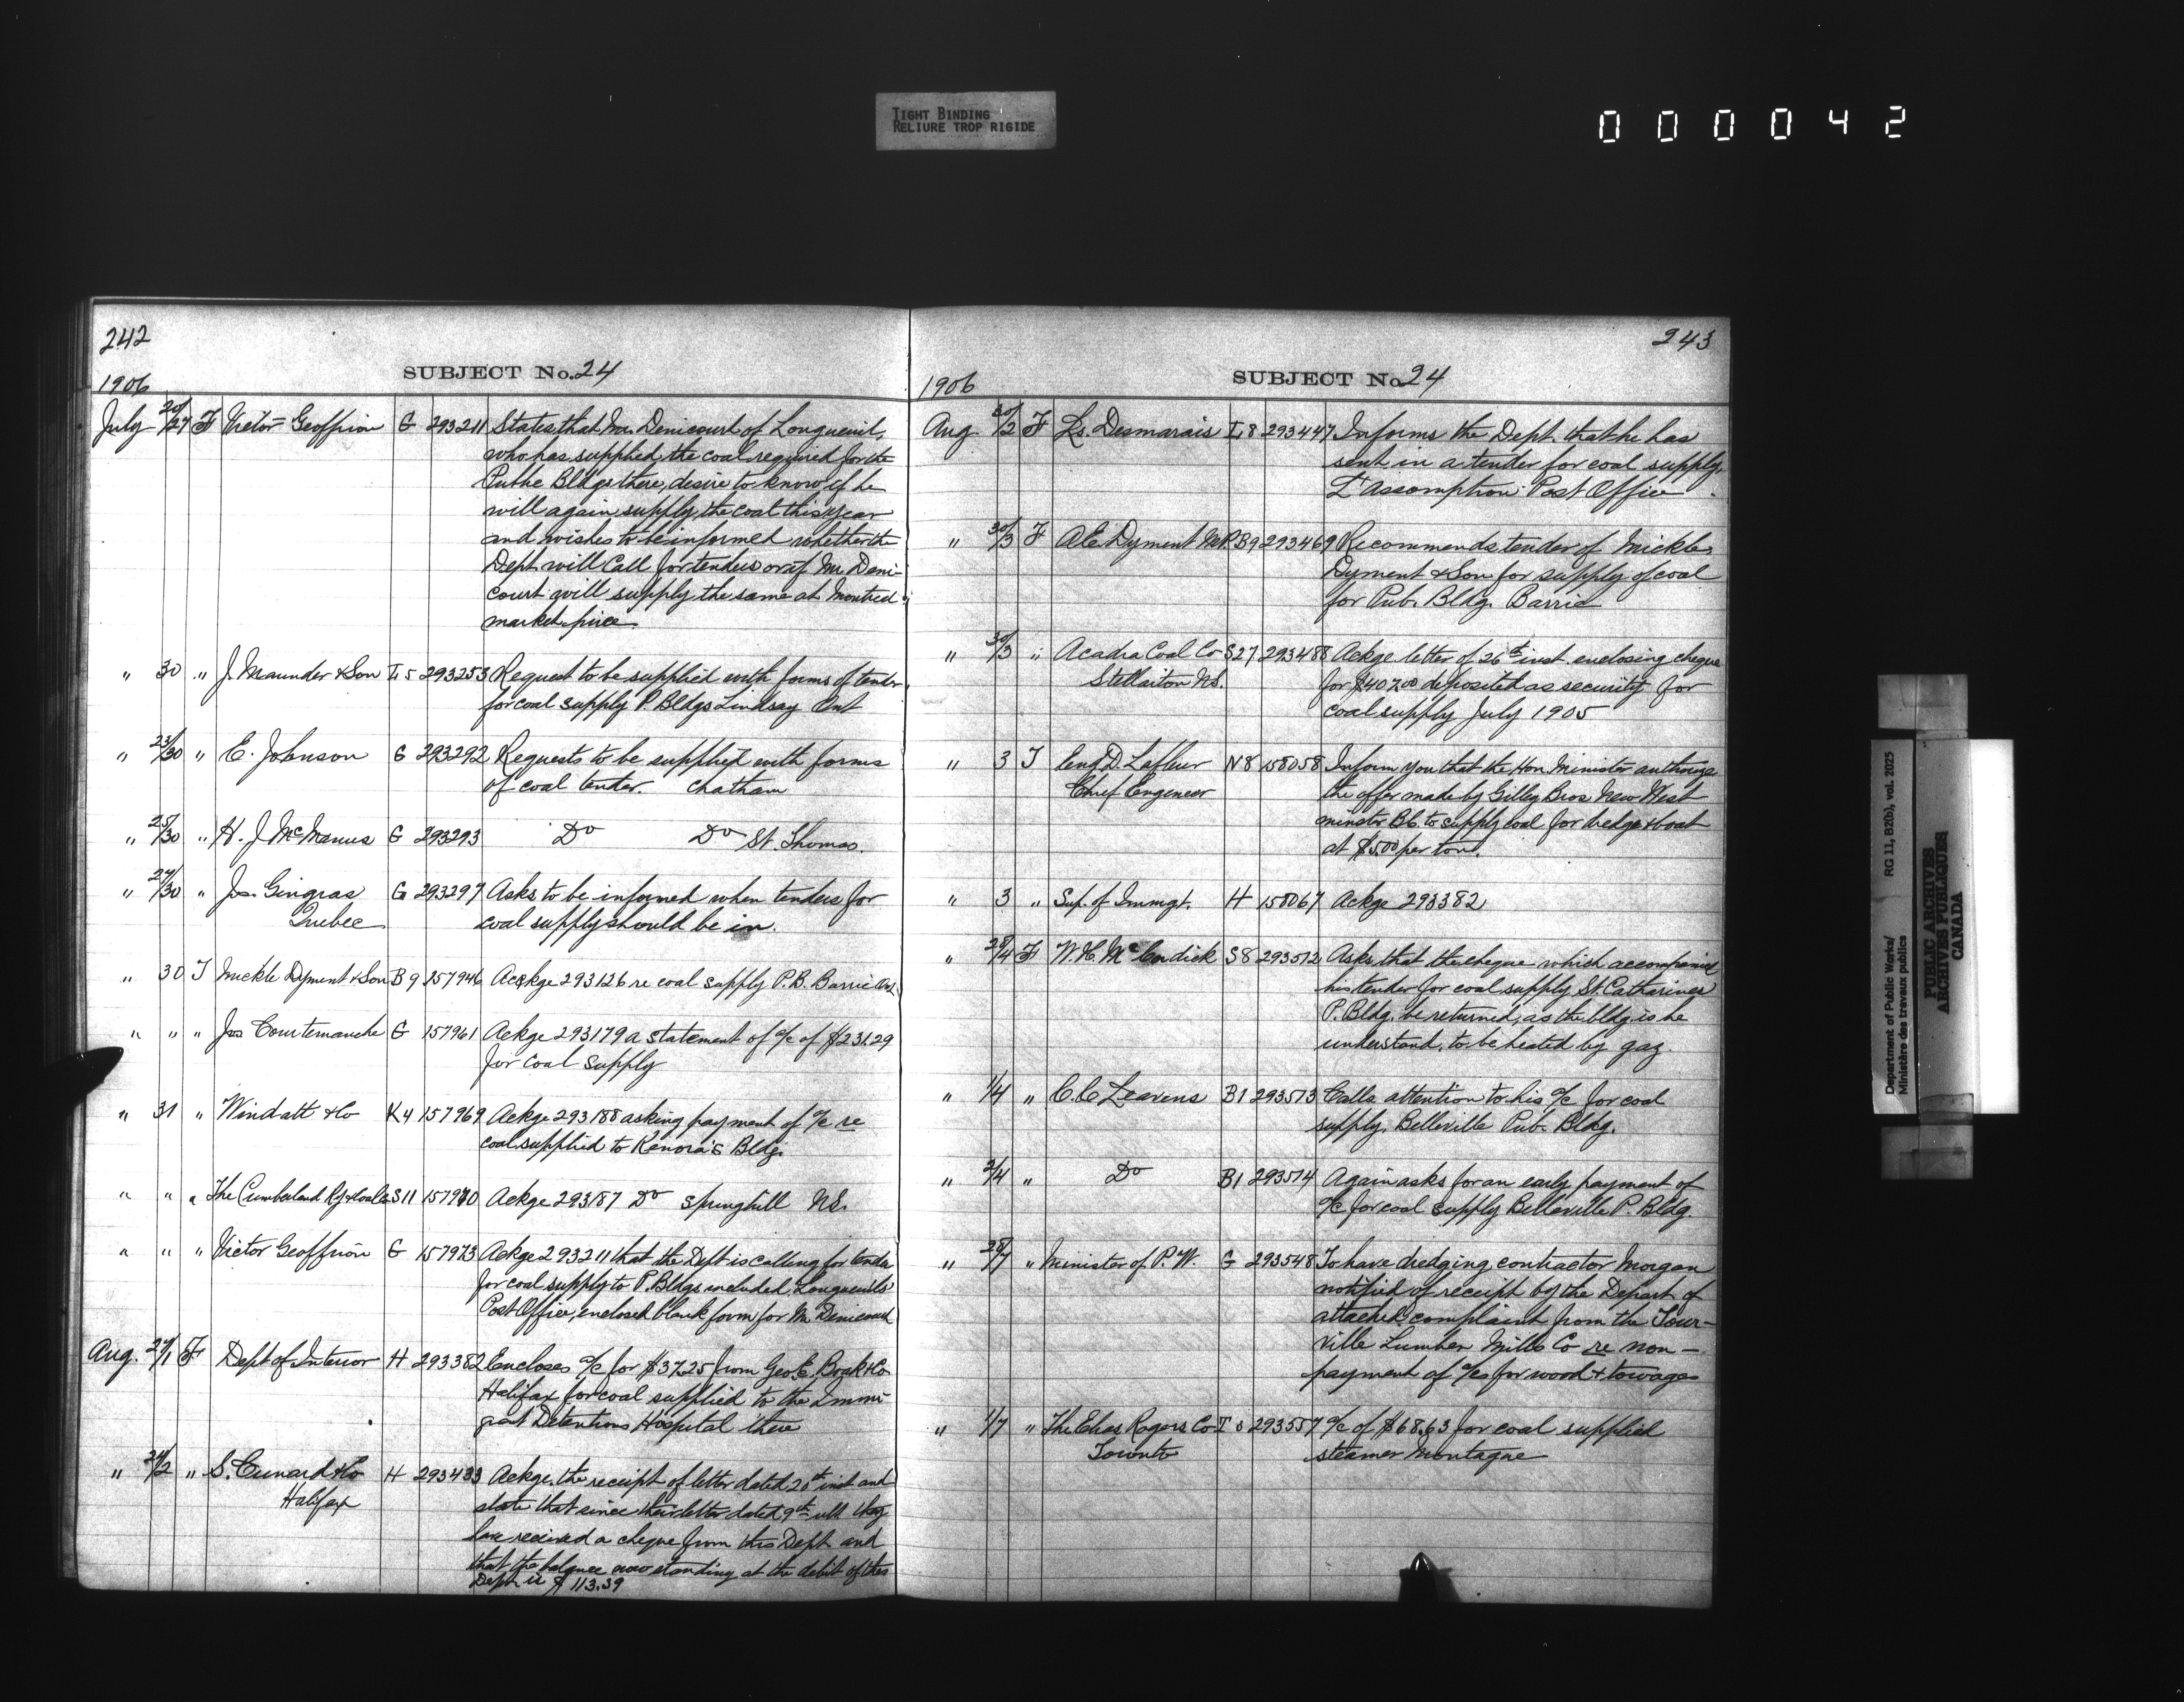 TIGHT BINDING
RELIURE TROP RIGIDE
000042
242
SUBJECT No. 24
1906
July 20/27 F Victor Geoffrion G 293211 States that Mr. Denicourt of Longueuil,
who has supplied the coal required for the
Public Bldgs there, desire to know if he
will again supply the coal this year
and wishes to be informed whether the
Dept. will call for tenders or if Mr. Deni-
court will supply the same at Montreal
market price.
" 30 " J. Maunder & Son L 5 293253 Request to be supplied with forms of tender
for coal supply P. Bldgs Lindsay Ont
" 23/30 " E. Johnson G 293292 Requests to be supplied with forms
of coal tender. Chatham
" 25/30 " H. J. McManus G 293293 Do Do St. Thomas.
" 27/30 " Jos. Gingras G 293297 Asks to be informed when tenders for
Quebec coal supply should be in.
" 30 T Mickle Dyment & Son B 9 157946 Ackge 293126 re coal supply P.B. Barrie Ont.
" " " Jos Courtemanche G 157961 Ackge 293179 a statement of a/c of $231.29
for coal supply
" 31 " Windatt & Co K 4 157969 Ackge 293188 asking payment of a/c re
coal supplied to Kenora's Bldg.
" " " The Cumberland Ry & Coal Co S 11 157970 Ackge 293187 Do Springhill NS.
" " " Victor Geoffrion G 157973 Ackge 293211 that the Dept is calling for tender
for coal supply to P. Bldgs included Longueuil's
Post Office, enclosed blank form for Mr Denicourt
Aug. 27/1 F Dept of Interior H 293382 Encloses a/c for $37.25 from Geo. E. Boak & Co
Halifax for coal supplied to the Immi-
grant Detentions Hospital there
" 24/2 " S. Cunard & Co H 293433 Ackge. the receipt of letter dated 20th inst and
Halifax state that since their letter dated 9th ult they
have received a cheque from this Dept and
that the balance now standing at the debit of this
Dept is $113.39
243
SUBJECT No 24
1906
Aug. 30/2 F Ls. Desmarais L 8 293447 Informs the Dept. that he has
sent in a tender for coal supply,
L'Assomption Post Office.
" 30/3 F A E Dyment MP. B 9 293469 Recommends tender of Mickle
Dyment & Son for supply of coal
for Pub. Bldg. Barrie
" 30/3 " Acadia Coal Co S 27 293488 Ackge letter of 26th inst. enclosing cheque
Stellarton NS. for $407.00 deposited as security for
coal supply July 1905
" 3 T Eug. D. Lafleur N 8 158058 Inform you that the Hon Minister authorize
Chief Engineer the offer made by Gilley Bros New West
minster B.C. to supply coal for dredge & boat
at $5.00 per ton.
" 3 " Sup. of Immgt. H 158067 Ackge 293382
" 28/4 F W. H. McCordick S 8 293512 Asks that the cheque which accompanied
his tender for coal supply St. Catharines
P. Bldg. be returned, as the bldg is he
understand, to be heated by gaz.
" 1/4 " C. C Leavens B 1 293513 Calls attention to his a/c for coal
supply. Belleville Pub. Bldg.
" 2/4 " Do B 1 293514 Again asks for an early payment of
a/c for coal supply Belleville P. Bldg.
" 28/7 " Minister of P. W. G 293548 To have dredging contractor Morgan
notified of receipt by the Depart. of
attached complaint from the Tour-
ville Lumber Mills Co re non-
payment of a/cs for wood & towage
" 1/7 " The Elias Rogers Co T 293557 a/c of $68.63 for coal supplied
Toronto steamer Montague
Department of Public Works/
Ministère des travaux publics
RG 11, B2(b), vol. 2025
PUBLIC ARCHIVES
ARCHIVES PUBLIQUES
CANADA